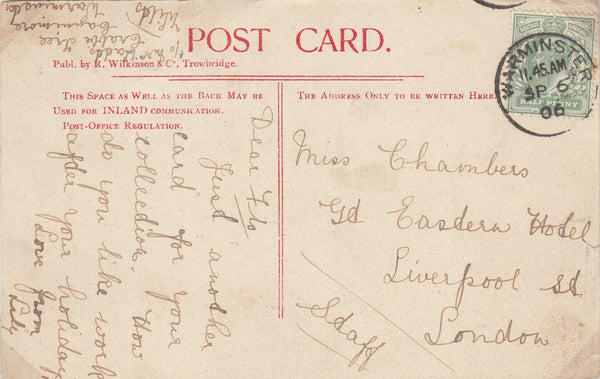 POST CARD.
Publ. by R. Wilkinson & Co, Trowbridge.
THIS SPACE AS WELL AS THE BACK MAY BE
USED FOR INLAND COMMUNICATION.
POST-OFFICE REGULATION.
THE ADDRESS ONLY TO BE WRITTEN HERE.
WARMINSTER
11.45 AM
SP 6
06
HALF PENNY
Dear Flo
Just another
card for your
collection. How
do you like work
after your holiday
Love from
Lily
c/o Mr
Crabb Tree
Warminster
Wilts
Miss Chambers
Gd Eastern Hotel
Liverpool St
London
Staff